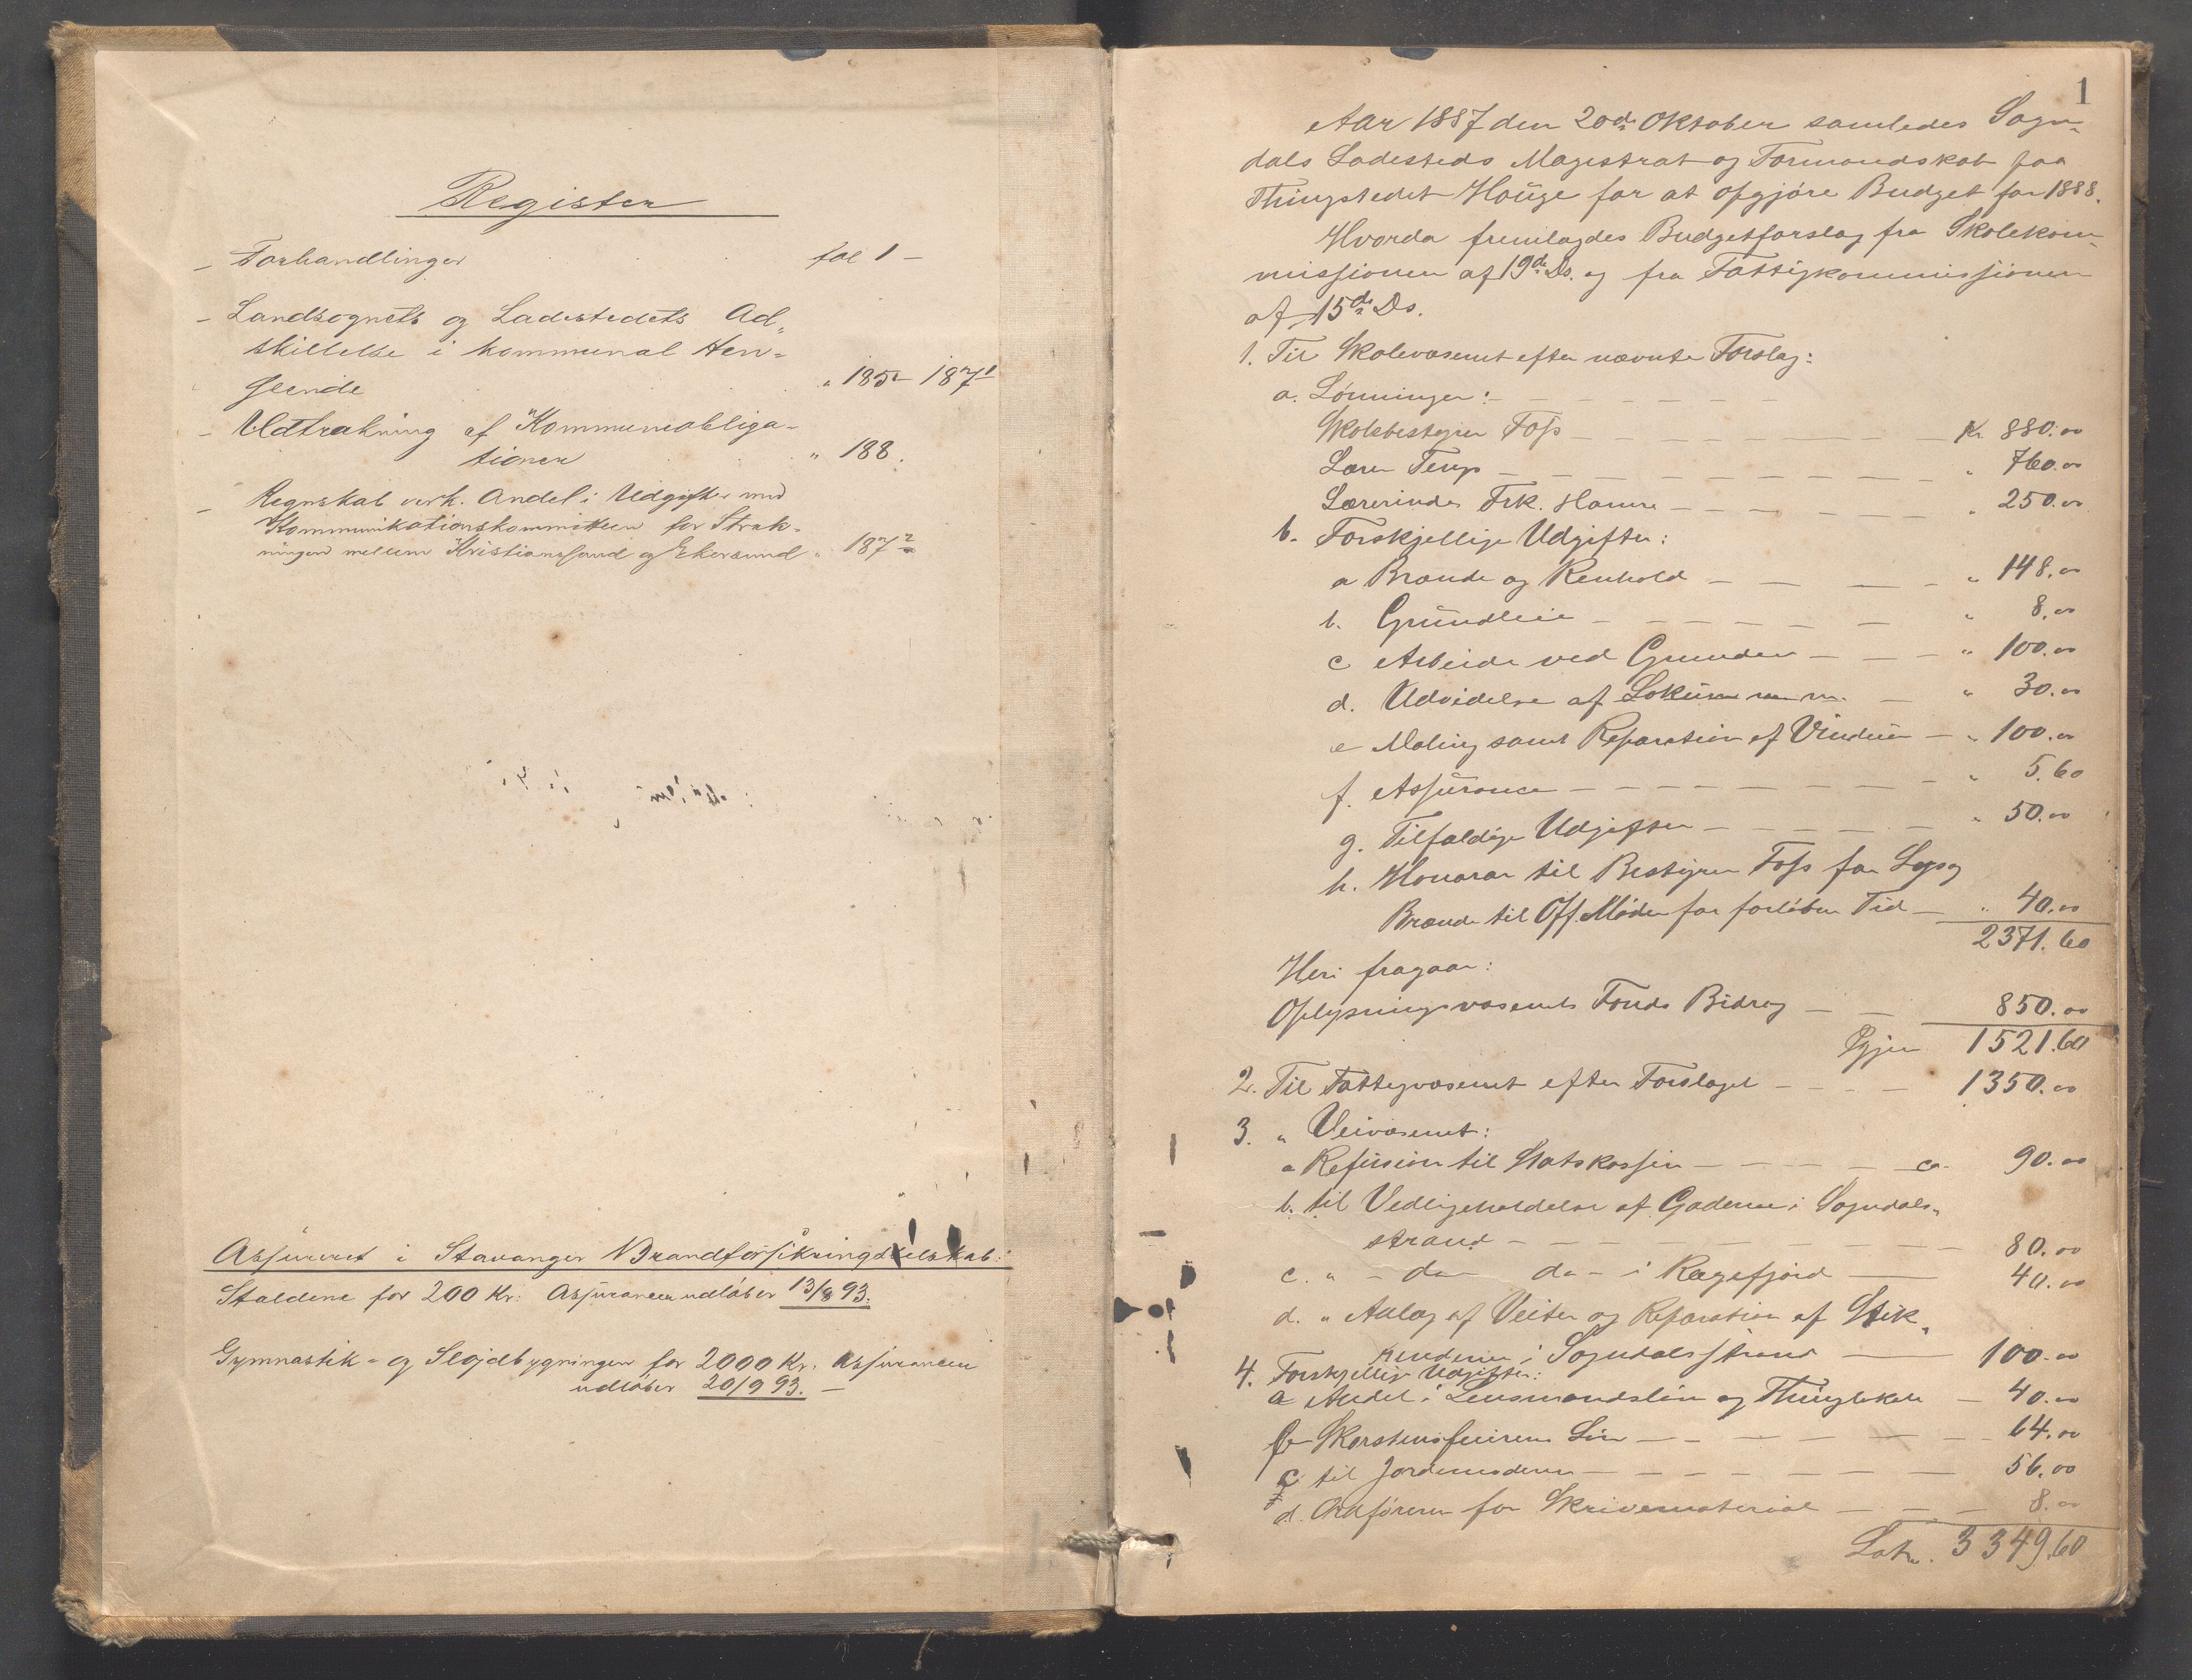 Register
– Forhandlinger fol 1 –
– Landsognets og Ladestedets Ad-
skillelse i kommunal Hen-
seende " 185– 187 1
– Udtrækning af Kommuneobliga-
tioner " 188.
– Regnskab verk. Andel i Udgifter med
Kommunikationskommiteen for Stræk-
ningen mellem Kristianssand og Ekersund " 187 2
Assureret i Stavanger Brandforsikringsselskab:
Staldene for 200 Kr: Assurancen udløber 13/8 93.
Gymnastik- og Sløjdbygningen for 2000 Kr. Assurancen
udløber 20/9 93. –
1
Aar 1887 den 20de Oktober samledes Sogn-
dals Ladesteds Magistrat og Formandskab paa
Thingstedet Hauge for at opgjøre Budget for 1888.
Hvorda fremlagdes Budgetforslag fra Skolekom-
missionen af 19de Ds. og fra Fattigkommissionen
af 15de Ds.
1. Til Skolevæsenet efter nævnte Forslag:
a. Lønninger:
Skolebestyrer Foss Kr. 880.00
Lærer Terp " 760.00
Lærerinde Frk. Hamre " 250.00
b. Forskjellige Udgifter:
a Brænde og Renhold " 148.00
b. Grundleie " 8.00
c Arbeide ved Grunden " 100.00
d. Udvidelse af Lokum m. m. " 30.00
e Maling samt Reparation af Vinduer " 100.00
f. Assurance " 5.60
g. Tilfældige Udgifter " 50.00
h. Honorar til Bestyrer Foss for Lys og
Brænde til Off. Møder for forløben Tid " 40.00
2371.60
Heri fragaar:
Oplysningsvæsenets Fonds Bidrag 850.00
Igjen 1521.60
2. Til Fattigvæsenet efter Forslaget 1350.00
3. " Veivæsenet:
a Refusion til Statskassen ca. 90.00
b. til Vedligeholdelse af Gaderne i Sogndals-
strand 80.00
c. " – do – do – i Rægefjord 40.00
d. " Anlæg af Veiter og Reparation af Stik-
renderne i Sogndalsstrand 100.00
4. Forskjellige Udgifter:
a Andel i Lensmandsløn og Thinglokale 40.00
b Skorstensfeierens Løn 64.00
c til Jordemoderen 56.00
d. Ordføreren for Skrivematerial 8.00
Lat. 3349.60